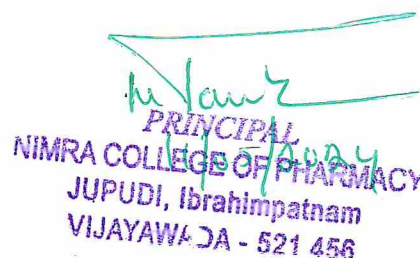 PRINCIPAL
NIMRA COLLEGE OF PHARMACY
JUPUDI, Ibrahimpatnam
VIJAYAWADA - 521 456